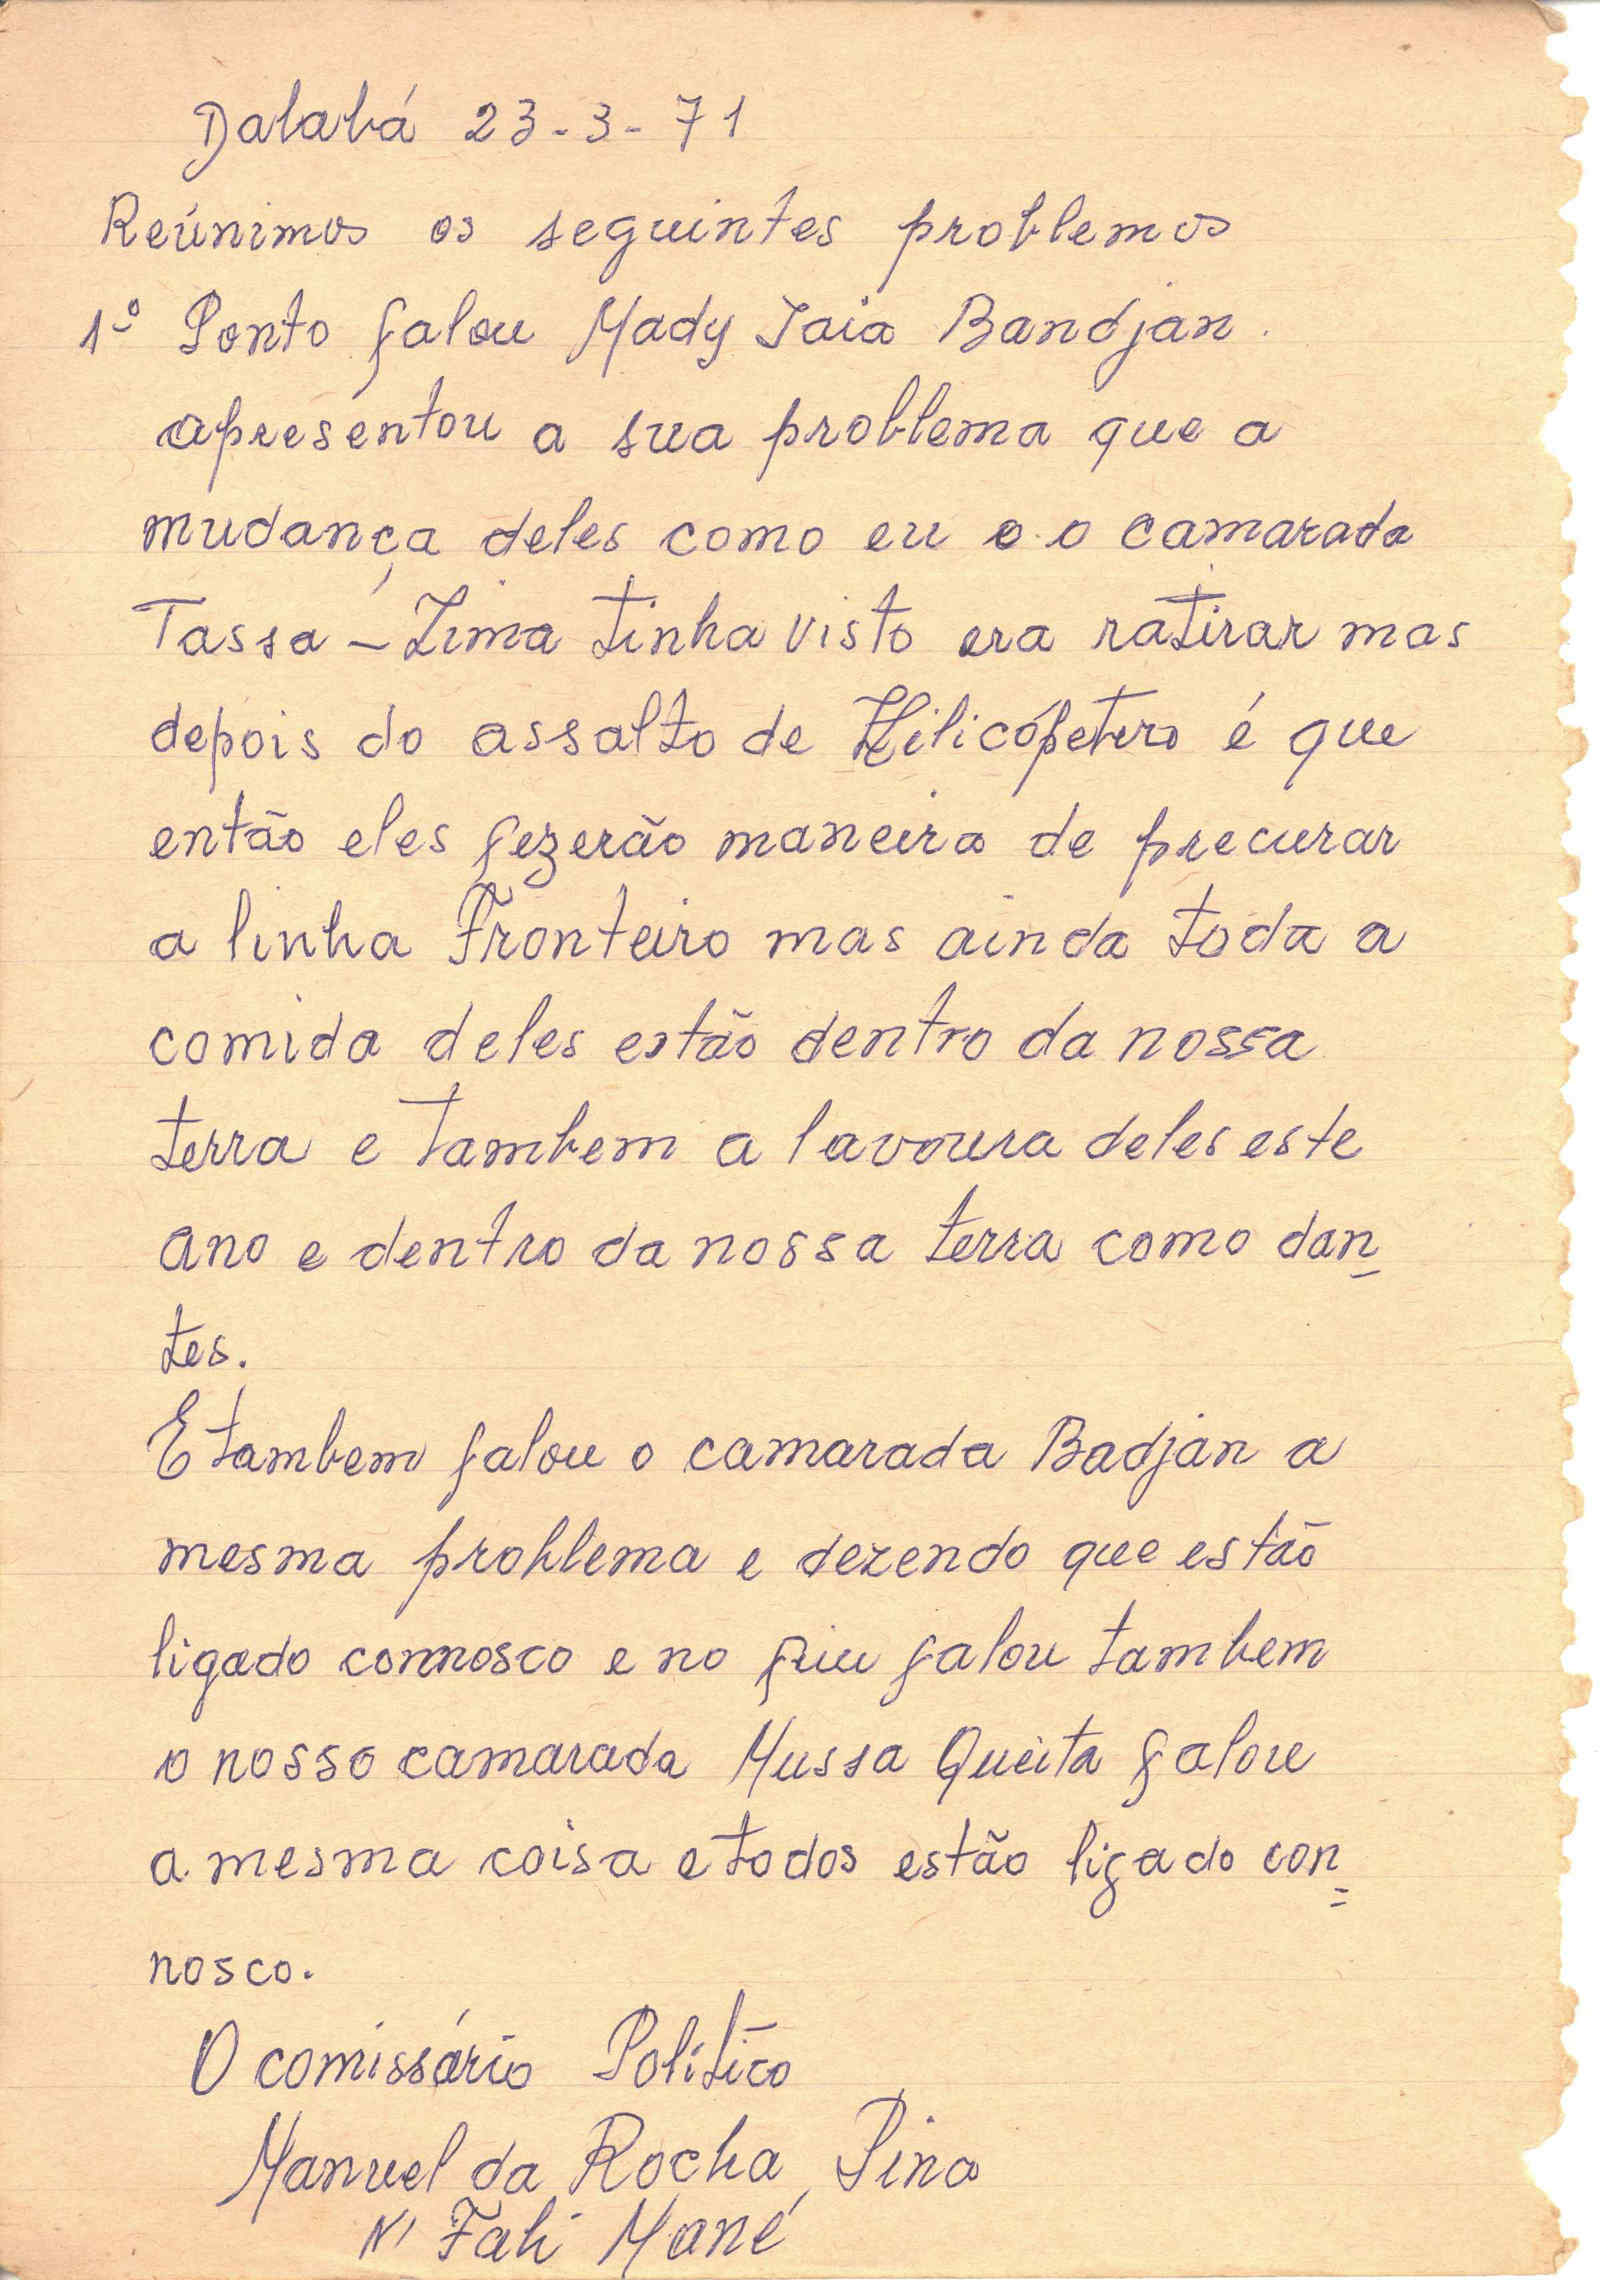 Dalabá 23-3-71
Reúnimos os seguintes problemos
1º Ponto falou Mady Iaia Bandjan.
apresentou a sua problema que a
mudança deles como eu e o camarada
Tassa - Lima tinha visto era ratirar mas
depois do assalto de Hilicópetero é que
então eles fezerão maneira de precurar
a linha Fronteiro mas ainda toda a
comida deles estão dentro da nossa
terra e tambem a lavoura deles este
ano e dentro da nossa terra como dan-
tes.
E tambem falou o camarada Badjan a
mesma problema e dezendo que estão
ligado connosco e no fim falou tambem
o nosso camarada Mussa Queita falou
a mesma coisa e todos estão ligado con=
nosco.
O comissário Político
Manuel da Rocha Pina
N' Fali Mané